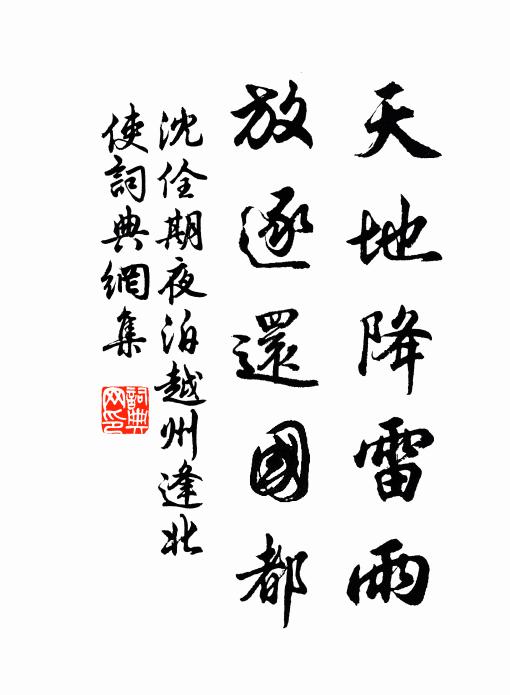 天地降雷雨
放逐還國都
沈佺期夜泊越州逢北
使詞典網集
詞典
网印